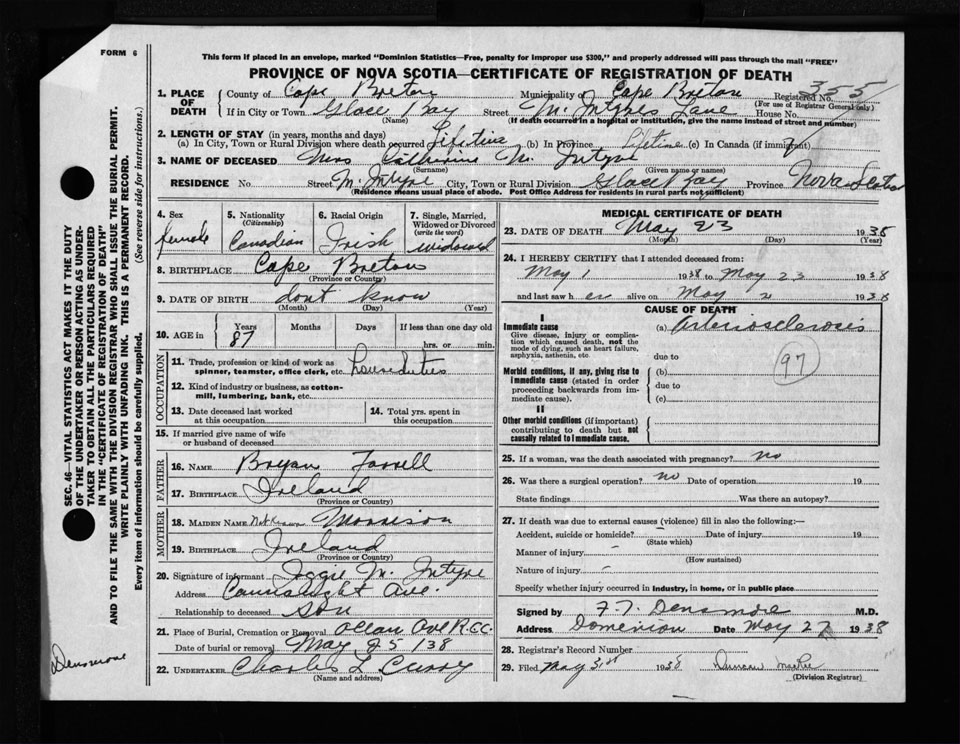 FORM 6
This form if placed in an envelope, marked "Dominion Statistics—Free, penalty for improper use $300," and properly addressed will pass through the mail "FREE"
PROVINCE OF NOVA SCOTIA—CERTIFICATE OF REGISTRATION OF DEATH
1. PLACE OF DEATH County of Cape Breton Municipality of Cape Breton Registered No. 355
(For use of Registrar General only)
If in City or Town Glace Bay Street McIntyres Lane House No.
(Name) (If death occurred in a hospital or institution, give the name instead of street and number)
2. LENGTH OF STAY (in years, months and days)
(a) In City, Town or Rural Division where death occurred Lifetime (b) In Province Lifetime (c) In Canada (if immigrant)
3. NAME OF DECEASED Mrs Catherine McIntyre
(Surname) (Given name or names)
RESIDENCE No Street McIntyre City, Town or Rural Division Glace Bay Province Nova Scotia
(Residence means usual place of abode. Post Office Address for residents in rural parts not sufficient)
4. Sex female
5. Nationality (Citizenship) Canadian
6. Racial Origin Irish
7. Single, Married, Widowed or Divorced (write the word) widowed
8. BIRTHPLACE Cape Breton
(Province or Country)
9. DATE OF BIRTH dont know
(Month) (Day) (Year)
10. AGE in Years 87 Months Days If less than one day old
hrs. or min.
OCCUPATION
11. Trade, profession or kind of work as spinner, teamster, office clerk, etc. house duties
12. Kind of industry or business, as cotton-mill, lumbering, bank, etc.
13. Date deceased last worked at this occupation
14. Total yrs. spent in this occupation
15. If married give name of wife or husband of deceased
FATHER
16. NAME Bryan Farrell
17. BIRTHPLACE Ireland
(Province or Country)
MOTHER
18. MAIDEN NAME Not Known Morrison
19. BIRTHPLACE Ireland
(Province or Country)
20. Signature of informant McIntyre
Address Connaught Ave.
Relationship to deceased son
21. Place of Burial, Cremation or Removal Ocean Ave R.C.C.
Date of burial or removal May 25/38
22. UNDERTAKER Charles L Curry
(Name and address)
MEDICAL CERTIFICATE OF DEATH
23. DATE OF DEATH May 23 1938
(Month) (Day) (Year)
24. I HEREBY CERTIFY that I attended deceased from:
May 1 1938 to May 23 1938
and last saw her alive on May 2 1938
CAUSE OF DEATH
I
Immediate cause (a) Arteriosclerosis
Give disease, injury or complication which caused death, not the mode of dying, such as heart failure, asphyxia, asthenia, etc
due to
97
Morbid conditions, if any, giving rise to immediate cause (stated in order proceeding backwards from immediate cause).
(b)
due to
(c)
II
Other morbid conditions (if important) contributing to death but not causally related to immediate cause.
25. If a woman, was the death associated with pregnancy? no
26. Was there a surgical operation? no Date of operation 19
State findings Was there an autopsy?
27. If death was due to external causes (violence) fill in also the following:—
Accident, suicide or homicide? Date of injury 19
(State which)
Manner of injury
(How sustained)
Nature of injury
Specify whether injury occurred in Industry, in home, or in public place
Signed by F.T. Densmore M.D.
Address Dominion Date May 27 1938
28. Registrar's Record Number
29. Filed May 31st 1938 Duncan
(Division Registrar)
SEC. 46—VITAL STATISTICS ACT MAKES IT THE DUTY OF THE UNDERTAKER OR PERSON ACTING AS UNDERTAKER TO OBTAIN ALL THE PARTICULARS REQUIRED IN THE "CERTIFICATE OF REGISTRATION OF DEATH" AND TO FILE THE SAME WITH THE DIVISION REGISTRAR WHO SHALL ISSUE THE BURIAL PERMIT.
WRITE PLAINLY WITH UNFADING INK. THIS IS A PERMANENT RECORD.
Every item of information should be carefully supplied. (See reverse side for instructions.)
Densmore